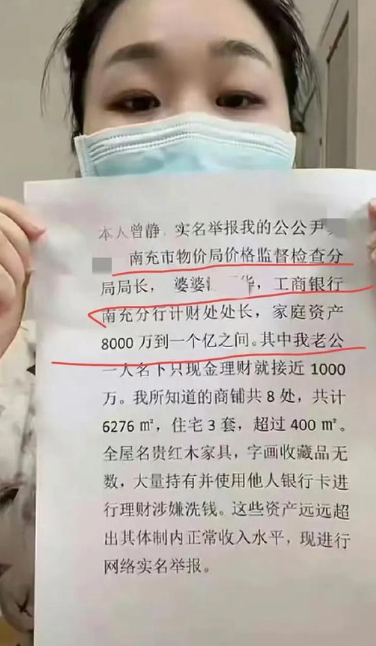 本人曾静，实名举报我的公公尹
南充市物价局价格监督检查分
局局长，婆婆 华，工商银行
南充分行计财处处长，家庭资产
8000 万到一个亿之间。其中我老公
一人名下只现金理财就接近 1000
万。我所知道的商铺共 8 处，共计
6276 ㎡，住宅 3 套，超过 400 ㎡。
全屋名贵红木家具，字画收藏品无
数，大量持有并使用他人银行卡进
行理财涉嫌洗钱。这些资产远远超
出其体制内正常收入水平，现进行
网络实名举报。